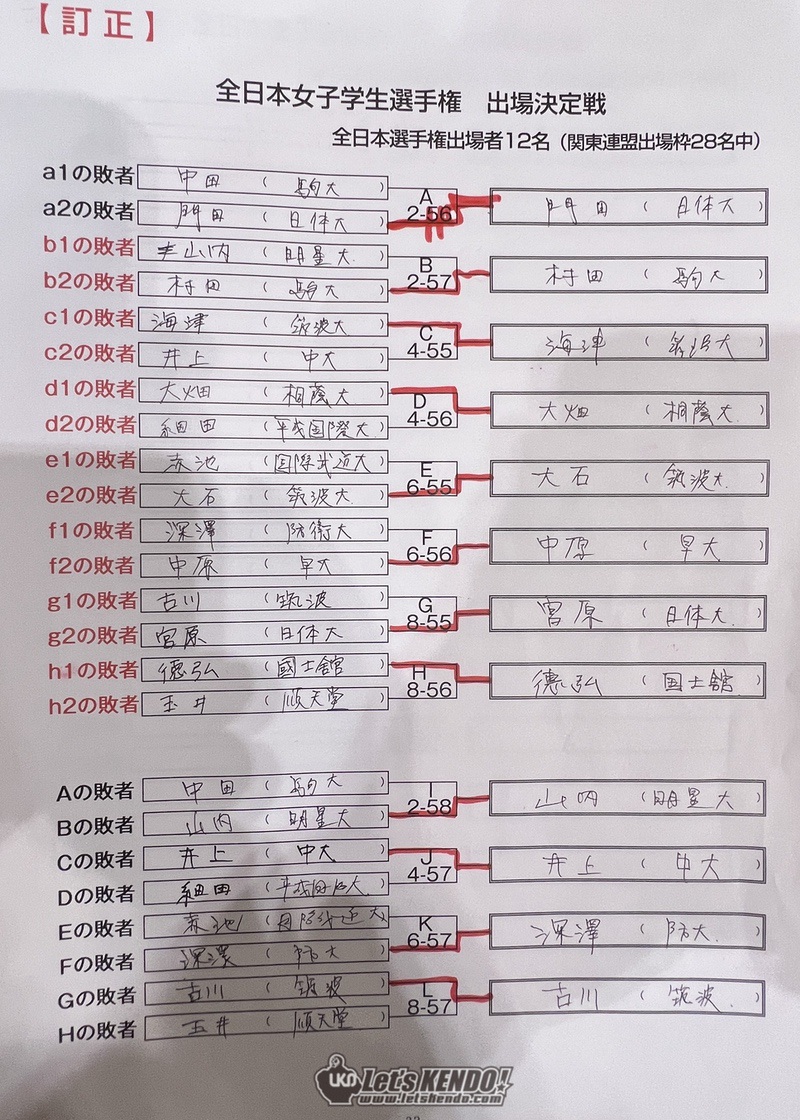 【訂正】
全日本女子学生選手権 出場決定戦
全日本選手権出場者12名（関東連盟出場枠28名中）
a1の敗者 中田 （ 駒大 ）
a2の敗者 門田 （ 日体大 ）
A
2-56
門田 （ 日体大 ）
b1の敗者 山内 （ 明星大 ）
b2の敗者 村田 （ 駒大 ）
B
2-57
村田 （ 駒大 ）
c1の敗者 海津 （ 筑波大 ）
c2の敗者 井上 （ 中大 ）
C
4-55
海津 （ 筑波大 ）
d1の敗者 大畑 （ 桐蔭大 ）
d2の敗者 細田 （ 平成国際大 ）
D
4-56
大畑 （ 桐蔭大 ）
e1の敗者 赤池 （ 国際武道大 ）
e2の敗者 大石 （ 筑波大 ）
E
6-55
大石 （ 筑波大 ）
f1の敗者 深澤 （ 防衛大 ）
f2の敗者 中原 （ 早大 ）
F
6-56
中原 （ 早大 ）
g1の敗者 古川 （ 筑波 ）
g2の敗者 宮原 （ 日体大 ）
G
8-55
宮原 （ 日体大 ）
h1の敗者 德弘 （ 國士舘 ）
h2の敗者 玉井 （ 順天堂 ）
H
8-56
德弘 （ 国士舘 ）
Aの敗者 中田 （ 駒大 ）
Bの敗者 山内 （ 明星大 ）
I
2-58
山内 （ 明星大 ）
Cの敗者 井上 （ 中大 ）
Dの敗者 細田 （ ）
J
4-57
井上 （ 中大 ）
Eの敗者 赤池 （ ）
Fの敗者 深澤 （ 防大 ）
K
6-57
深澤 （ 防大 ）
Gの敗者 古川 （ 筑波 ）
Hの敗者 玉井 （ 順天堂 ）
L
8-57
古川 （ 筑波 ）
LKD Let's KENDO!
www.letskendo.com